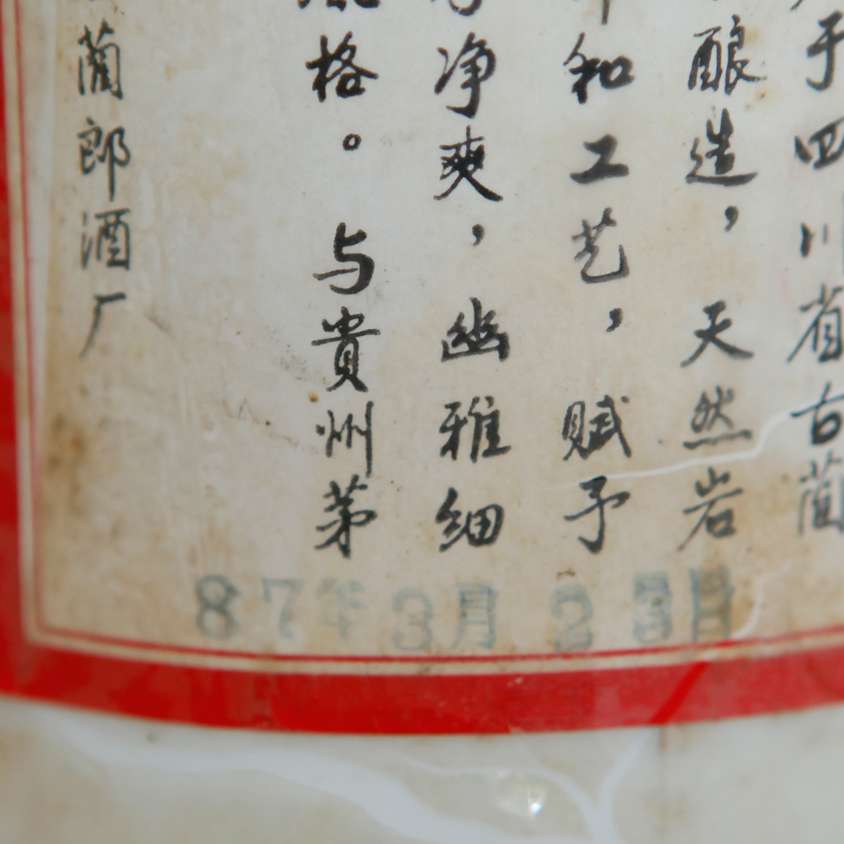 于四川省古蔺
酿造，天然岩
和工艺，赋予
净爽，幽雅细
格。与貴州茅
蔺郎酒厂
87年3月23日